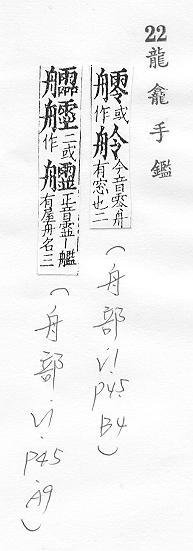 22 龍龕手鑑
或作舲今音零舟有窓也二
(舟部.V1.P45.B4)
二或作 正音靈丨艦有屋舟名三
(舟部.V1.P45.A9)